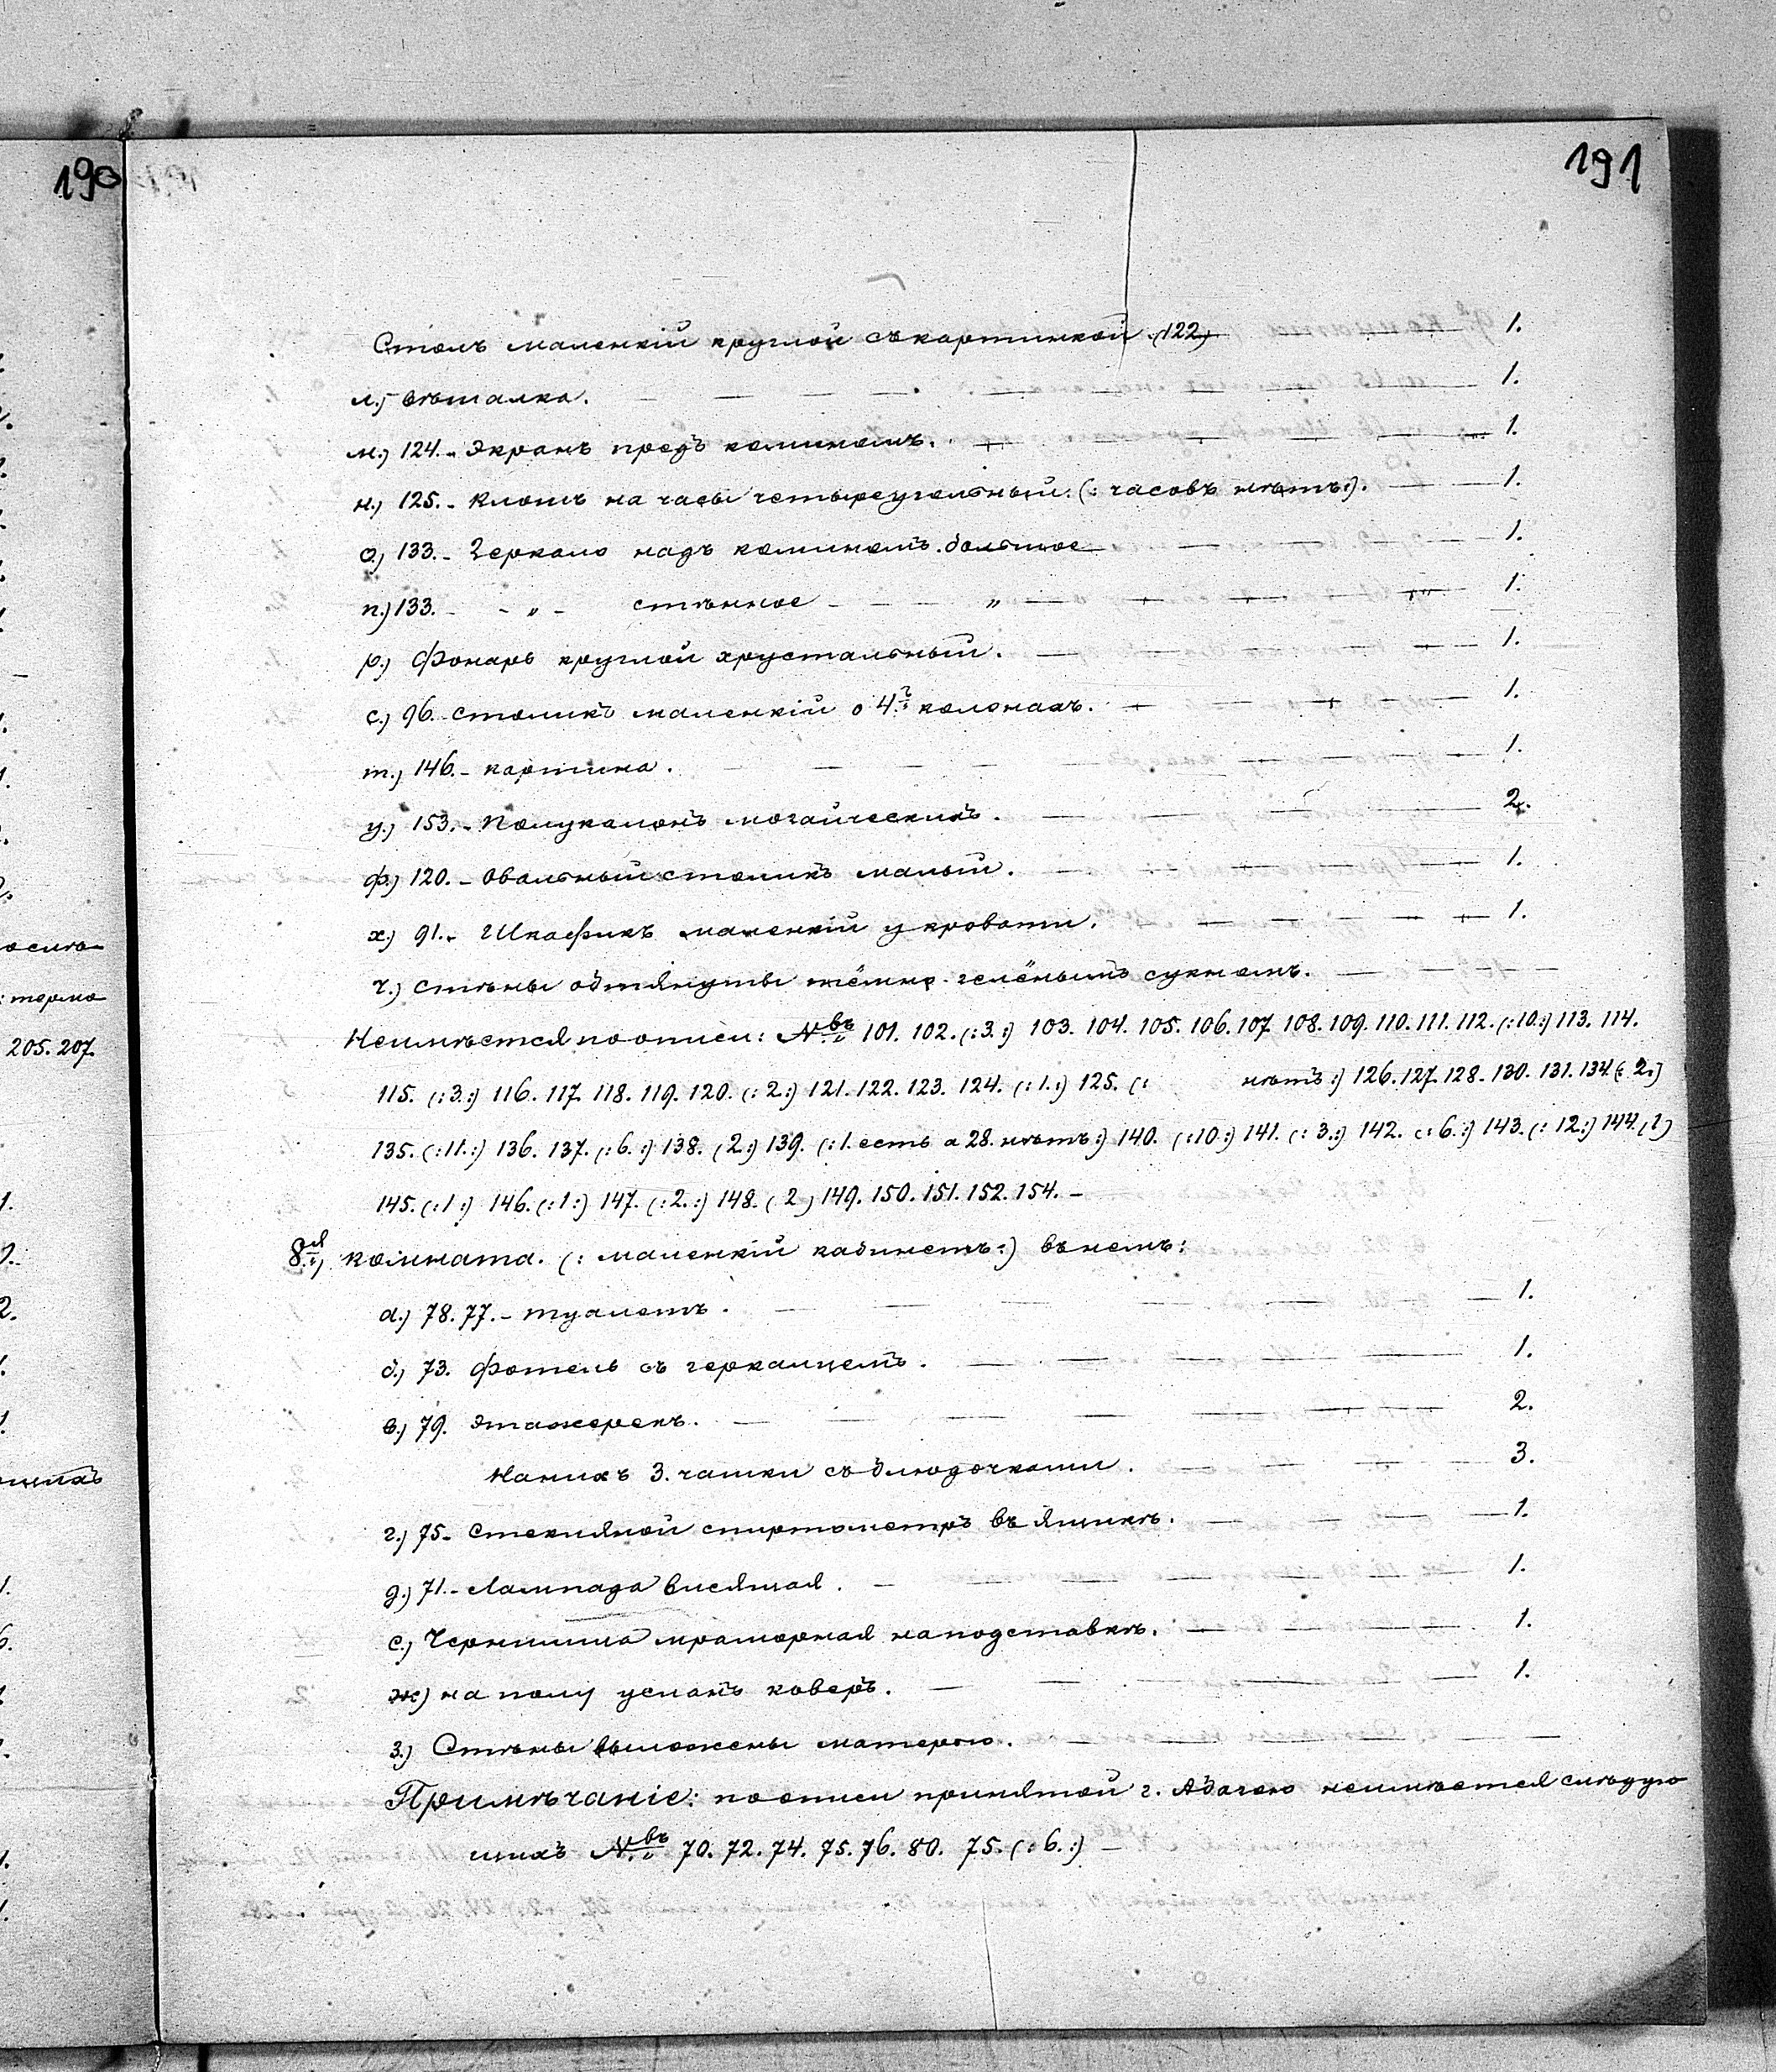 190
191
Столъ маленкій круглой съ картинкой (122) — 1.
л.) вѣшалка. — 1.
м.) 124. - Экранъ предъ каминомъ. — 1.
н.) 125. - Клошъ на часы четыреугольный. (: часовъ нѣтъ:). — 1.
о.) 133. - Зеркало надъ каминомъ. большое — 1.
п.) 133. - - „ - стѣнное - - - „ — 1.
р.) Фонарь круглой хрустальный. — 1.
с.) 96. - столикъ маленкій о 4.хъ колонахъ. — 1.
т.) 146. - картина. — 1.
у.) 153. - Полуколонъ мозаическихъ. — 2.
ф.) 120. - Овальный столикъ малый. — 1.
х.) 91. - Шкафикъ маленкій у кровати. — 1.
ч.) стѣны обтянуты тёмно-зелёнымъ сукномъ. —
Неимѣется по описи: №въ 101. 102. (: 3. :) 103. 104. 105. 106. 107. 108. 109. 110. 111. 112. (: 10. :) 113. 114.
115. (: 3. :) 116. 117. 118. 119. 120. (: 2. :) 121. 122. 123. 124. (: 1. :) 125. (: нѣтъ :) 126. 127. 128. 130. 131. 134. (: 2. :)
135. (: 11. :) 136. 137. (: 6. :) 138. (2. :) 139. (: 1. есть а 28. нѣтъ :) 140. (: 10 :) 141. (: 3. :) 142. (: 6. :) 143. (: 12. :) 144. (1)
145. (: 1 :) 146. (: 1 :) 147. (: 2. :) 148. ( 2 ) 149. 150. 151. 152. 154. -
8.я) комната. (: маленкій кабинетъ :) въ немъ:
а.) 78. 77. - туалетъ. — 1.
б.) 73. Фотель съ зеркалцемъ. — 1.
в.) 79. Этажерекъ. — 2.
На нихъ 3. чашки съ блюдочками. — 3.
г.) 75. Стекляной спиртометръ въ ящикѣ. — 1.
д.) 71. - Лампада висящая. — 1.
е.) Чернилица мраморная на подставкѣ. — 1.
ж.) на полу усланъ коверъ. — 1.
з.) Стѣны выложены матерею. —
Примѣчаніе: по описи принятой г. Абазою неимѣется слѣдую
щихъ №въ 70. 72. 74. 75. 76. 80. 75. (: 6. :) —
: термо
205. 207.